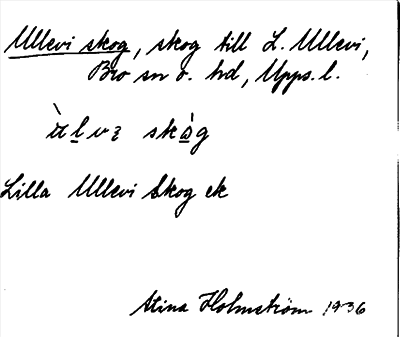 Ullevi skog, skog till L. Ullevi,
Bro sn o. hd, Upps. l.
skåg
Lilla Ullevi Skog ek
Stina Holmström 1936